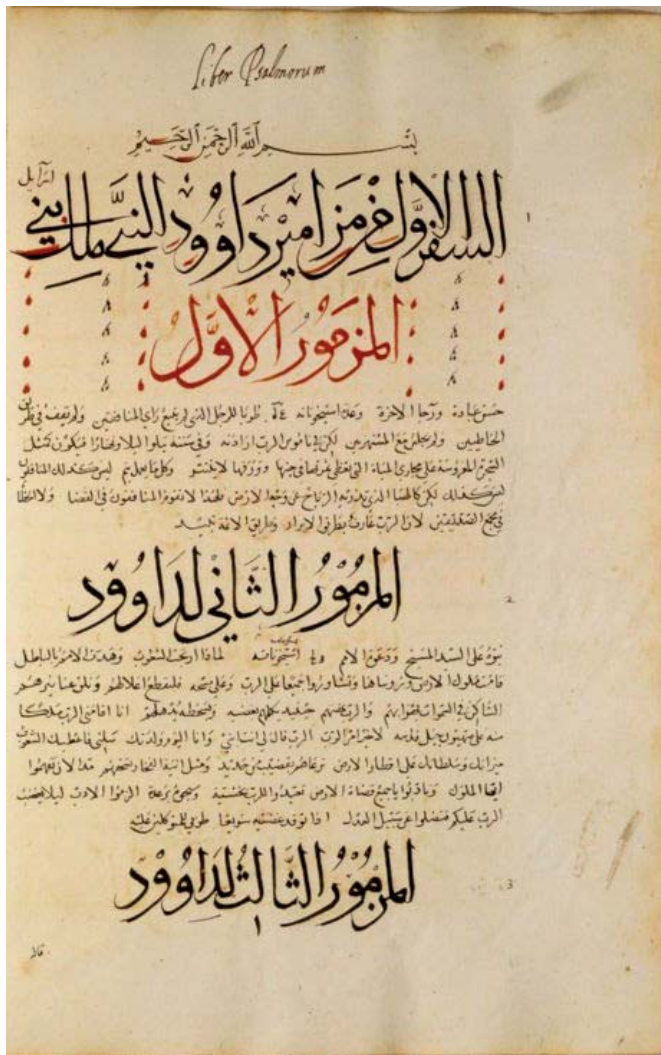 Liber Psalmorum
بسم الله الرحمن الرحيم
السفر الاول من مزامير داوود النبي ملك بني اسرآيل
1
المزمور الاول
حسن عبادة ورجا الاخرة وعدة استيخوناته طوبا للرجل الذي لم يتبع راي المنافقين ولم يقف في طريق
الخاطيين ولم يجلس مع المستهزيين لكن في ناموس الرب ارادته وفي سننه يتلوا ليلا ونهارا فيكون كمثل
الشجرة المغروسة على مجاري المياة التي تعطي ثمرتها في حينها وورقها لا ينتثر وكل ما يعمل يتم ليس كذلك المنافقون
ليس كذلك لكن كالهبا الذي تذريه الرياح عن وجه الارض فلهذا لا تقوم المنافقون في القضا ولا الخطاة
في مجمع الصديقين لان الرب عارف بطريق الابرار وطريق الاثمة تبيد
المزمور الثاني لداوود
2
نبوة على السيد المسيح ودعوة الامم استيخوناته لماذا ارتجت الشعوب وهذت الامم بالباطل
قامت ملوك الارض وروساها وتشاوروا جميعا على الرب وعلى مسيحه فلنقطع اغلالهم ونلق عنا نيرهم
الساكن في السموات والرب حينيد يكلمهم بغضبه وبسخطه يذهلهم انا اقامني الرب ملكا
منه على صهيون جبل قدسه لاخبر امر الرب الرب قال لي انت ابني وانا اليوم ولدتك سلني فاعطيك الشعوب
ميراثك وسلطانك على اقطار الارض ترعاهم بقضيب من حديد ومثل انية الفخار تسحقهم
ايها الملوك وتادبوا يا جميع قضاة الارض تعبدوا للرب بخشية الزموا الادب ليلا يغضب
الرب عليكم فتضلوا عن سبيل العدل اذا توقد غضبه سريعا طوبى للمتوكلين عليه
المزمور الثالث لداوود
3
قال